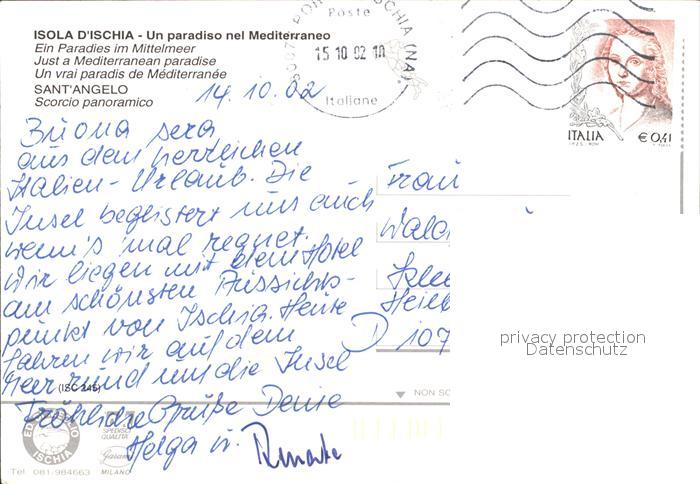 ISOLA D'ISCHIA - Un paradiso nel Mediterraneo
Ein Paradies im Mittelmeer
Just a Mediterranean paradise
Un vrai paradis de Méditerranée
SANT'ANGELO
Scorcio panoramico
Poste
ISCHIA (NA)
15 10 02 18
Italiane
ITALIA
€ 0,41
14.10.02
Buona sera
aus dem herrlichen
Italien-Urlaub. Die
Insel begeistert uns auch
wenn's mal regnet.
Wir liegen mit dem Hotel
am schönsten Aussichts-
punkt von Ischia. Heute
fahren wir auf dem
Meer rund um die Insel
Fröhliche Grüße Deine
Helga u. Renate
Frau
D 107
privacy protection
Datenschutz
(ISC 245)
NON SC
ISCHIA
SPEDISCI
QUALITÀ
MILANO
Tel. 081-984663